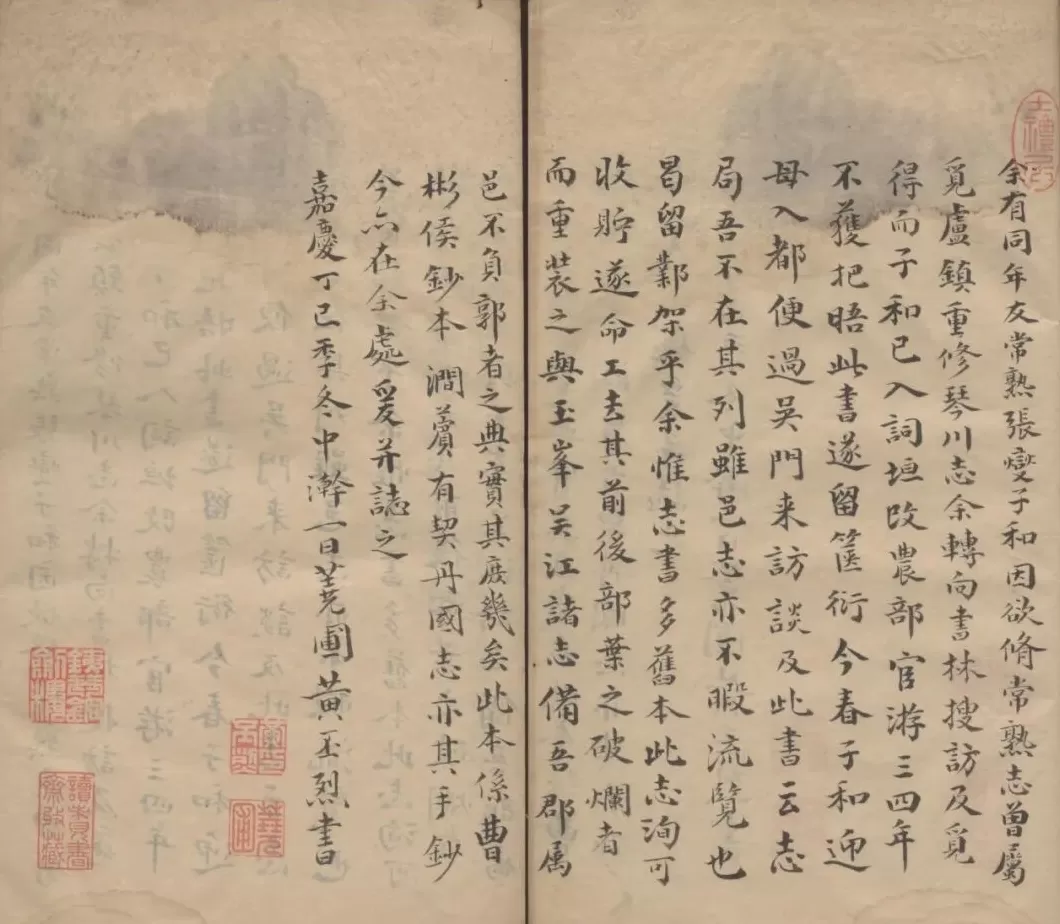 余有同年友常熟張燮子和因欲脩常熟志曾屬
覓盧鎮重修琴川志余轉向書林搜訪及覓
得而子和已入詞垣改農部官游三四年
不獲把晤此書遂留篋衍今春子和迎
母入都便過吳門来訪談及此書云志
局吾不在其列雖邑志亦不暇流覽也
曷留鄴架乎余惟志書多舊本此志洵可
收貯遂命工去其前後部葉之破爛者
而重裝之與玉峯吳江諸志備吾郡属
邑不負郭者之典實其庶幾矣此本係曹
彬侯鈔本澗薲有契丹國志亦其手鈔
今亦在余處爰并誌之
嘉慶丁巳季冬中澣一日蕘圃黄丕烈書
士禮居